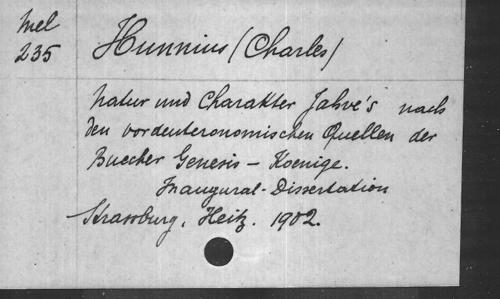 Mel
235
Hunnius (Charles)
Natur und Charakter Jahve's nach
den vordeuteronomischen Quellen der
Buecher Genesis – Koenige.
Inaugural-Dissertation
Strassburg, Heitz. 1902.